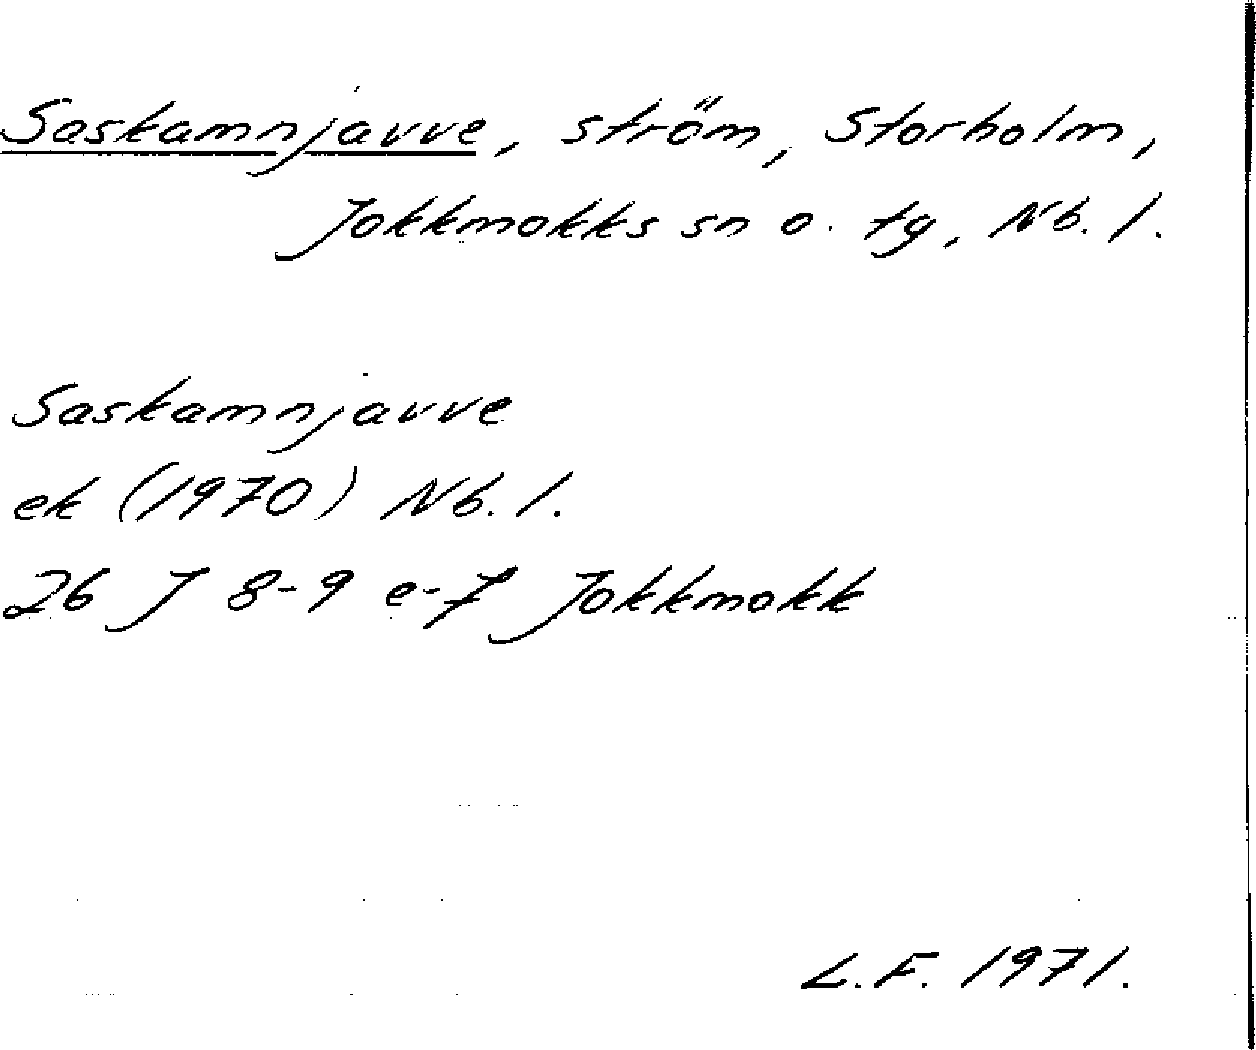 Saskamnjavve, ström, Storholm,
Jokkmokks sn o. tg, Nb. l.
Saskamnjavve
ek (1970) Nb. l.
26 J 8-9 e-f Jokkmokk
L.F. 1971.